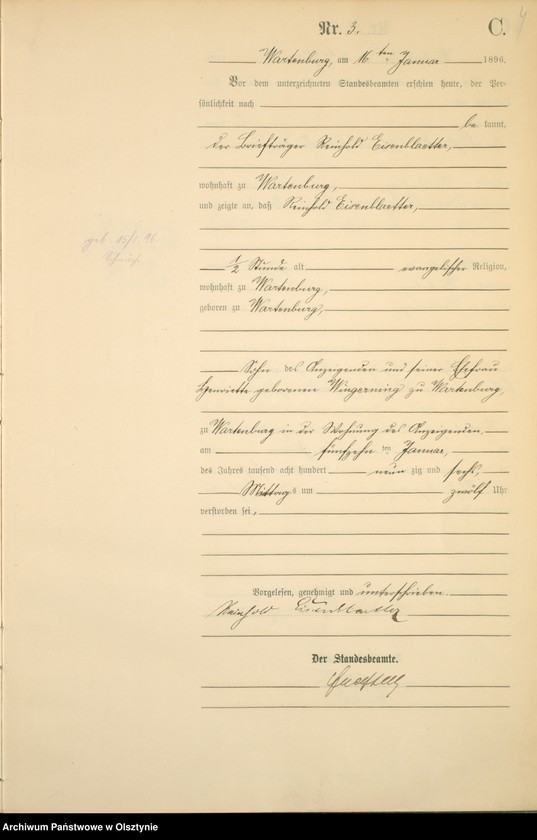 Nr. 3.
C.
Wartenburg, am 16 ten Januar 1896.
Vor dem unterzeichneten Standesbeamten erschien heute, der Per-
sönlichkeit nach
be kannt,
der Briefträger Reinhold Eisenblaetter,
wohnhaft zu Wartenburg,
und zeigte an, daß Reinhold Eisenblaetter,
geb. 15/1. 96.
1/2 Stunde alt evangelischer Religion,
wohnhaft zu Wartenburg,
geboren zu Wartenburg,
Sohn des Anzeigenden und seiner Ehefrau
Henriette geborenen Wingerning zu Wartenburg,
zu Wartenburg in der Wohnung des Anzeigenden
am fünfzehn ten Januar,
des Jahres tausend acht hundert neun zig und sechs,
Mittags um zwölf Uhr
verstorben sei,
Vorgelesen, genehmigt und unterschrieben.
Reinhold Eisenblaetter
Der Standesbeamte.
Archiwum Państwowe w Olsztynie